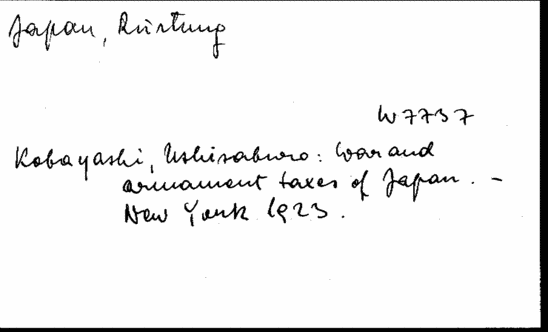 Japan, Rüstung
W7737
Kobayashi, Ushisaburo: War and
armament taxes of Japan. -
New York 1923.